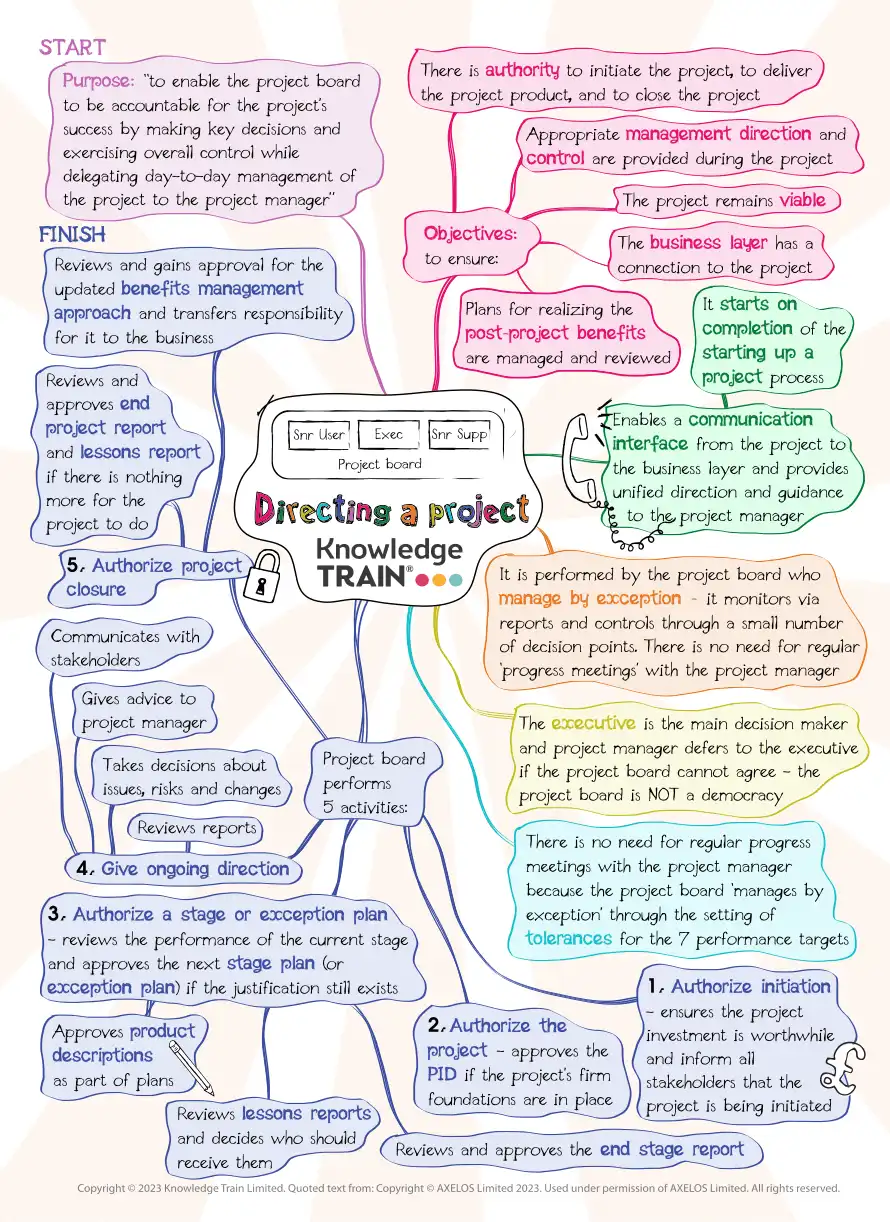 START
Purpose: "to enable the project board
to be accountable for the project's
success by making key decisions and
exercising overall control while
delegating day-to-day management of
the project to the project manager"
There is authority to initiate the project, to deliver
the project product, and to close the project
Appropriate management direction and
control are provided during the project
The project remains viable
Objectives:
to ensure:
The business layer has a
connection to the project
Plans for realizing the
post-project benefits
are managed and reviewed
It starts on
completion of the
starting up a
project process
Enables a communication
interface from the project to
the business layer and provides
unified direction and guidance
to the project manager
FINISH
Reviews and gains approval for the
updated benefits management
approach and transfers responsibility
for it to the business
Reviews and
approves end
project report
and lessons report
if there is nothing
more for the
project to do
5. Authorize project
closure
Snr User
Exec
Snr Supp
Project board
Directing a project
Knowledge
TRAIN®
It is performed by the project board who
manage by exception - it monitors via
reports and controls through a small number
of decision points. There is no need for regular
'progress meetings' with the project manager
The executive is the main decision maker
and project manager defers to the executive
if the project board cannot agree - the
project board is NOT a democracy
There is no need for regular progress
meetings with the project manager
because the project board 'manages by
exception' through the setting of
tolerances for the 7 performance targets
Project board
performs
5 activities:
Communicates with
stakeholders
Gives advice to
project manager
Takes decisions about
issues, risks and changes
Reviews reports
4. Give ongoing direction
3. Authorize a stage or exception plan
- reviews the performance of the current stage
and approves the next stage plan (or
exception plan) if the justification still exists
Approves product
descriptions
as part of plans
Reviews lessons reports
and decides who should
receive them
Reviews and approves the end stage report
2. Authorize the
project - approves the
PID if the project's firm
foundations are in place
1. Authorize initiation
- ensures the project
investment is worthwhile
and inform all
stakeholders that the
project is being initiated
£
Copyright © 2023 Knowledge Train Limited. Quoted text from: Copyright © AXELOS Limited 2023. Used under permission of AXELOS Limited. All rights reserved.